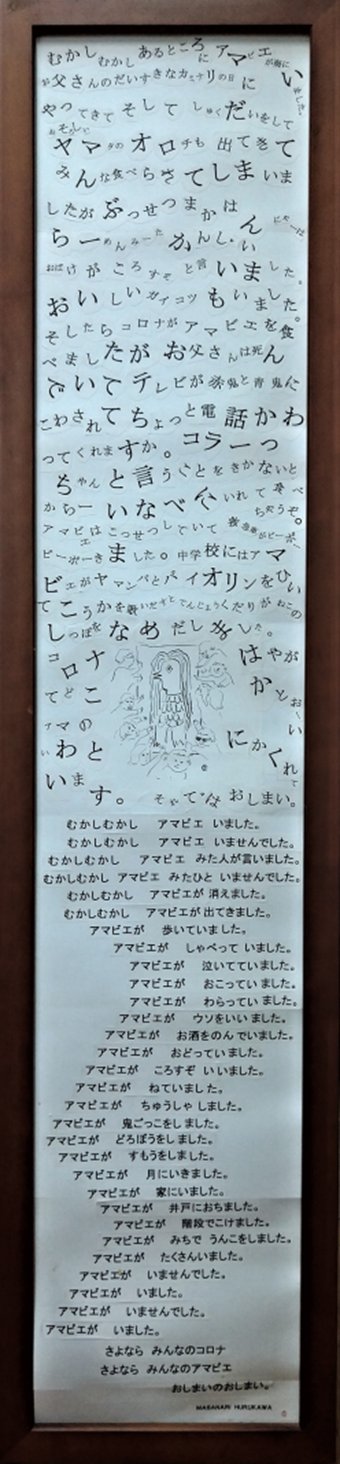 むかしむかしあるところにアマビエが海に
お父さんのだいすきなカミナリの日にいました。
やってきてそしてしゅくだいをして
おそろしいヤマタのオロチも出てきて
みんな食べらさてしまいま
したがぶっせつまかはん
にゃーはらーめんみーたかんじーい
おばけがころすぞと言いました。
おいしいガイコツもいました。
そしたらコロナがアマビエを食
べましたがお父さんは死ん
でいてテレビが赤鬼と青鬼に
こわされてちょっと電話かわ
ってくれますか。コラーっ
ちゃんと言うことをきかないと
からーいなべに入れて食べちゃうぞ。
アマビエはこっせつしていて救急車がピーポー
ピーポーきました。中学校にはアマ
ビエがヤマンバとバイオリンをひい
てこうかを歌いだすとてんじょうくだりがねこの
しっぽをなめだしました。
コロナ
てど
このあと
はやが
かとお〜い
にかくれて
います。
そやではおしまい。
むかしむかし アマビエ いました。
むかしむかし アマビエ いませんでした。
むかしむかし アマビエ みた人が言いました。
むかしむかし アマビエ みたひと いませんでした。
むかしむかし アマビエが 消えました。
むかしむかし アマビエが出てきました。
アマビエが 歩いていました。
アマビエが しゃべって いました。
アマビエが 泣いてていました。
アマビエが おこってい ました。
アマビエが わらってい ました。
アマビエが ウソをいい ました。
アマビエが お酒をのん でいました。
アマビエが おどってい ました。
アマビエが ころすぞ い いました。
アマビエが ねていまし た。
アマビエが ちゅうしゃ しました。
アマビエが 鬼ごっこをし ました。
アマビエが どろぼうをし ました。
アマビエが すもうをしました。
アマビエが 月にいきました。
アマビエが 家にいました。
アマビエが 井戸におちました。
アマビエが 階段でこけました。
アマビエが みちで うんこをしました。
アマビエが たくさんいました。
アマビエが いませんでした。
アマビエが いました。
アマビエが いませんでした。
アマビエが いました。
さよなら みんなのコロナ
さよなら みんなのアマビエ
おしまいのおしまい。
MASANARI HURUKAWA